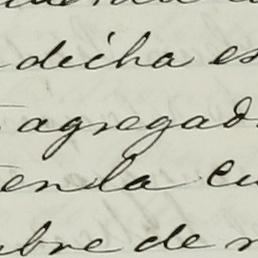 dicha es
agregad
en la cu
bre de n